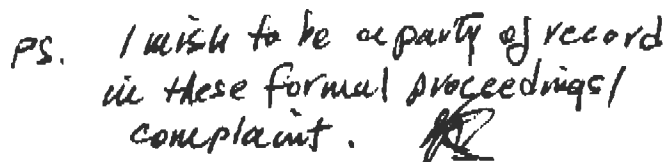 PS. I wish to be a party of record
in these formal proceedings/
complaint.